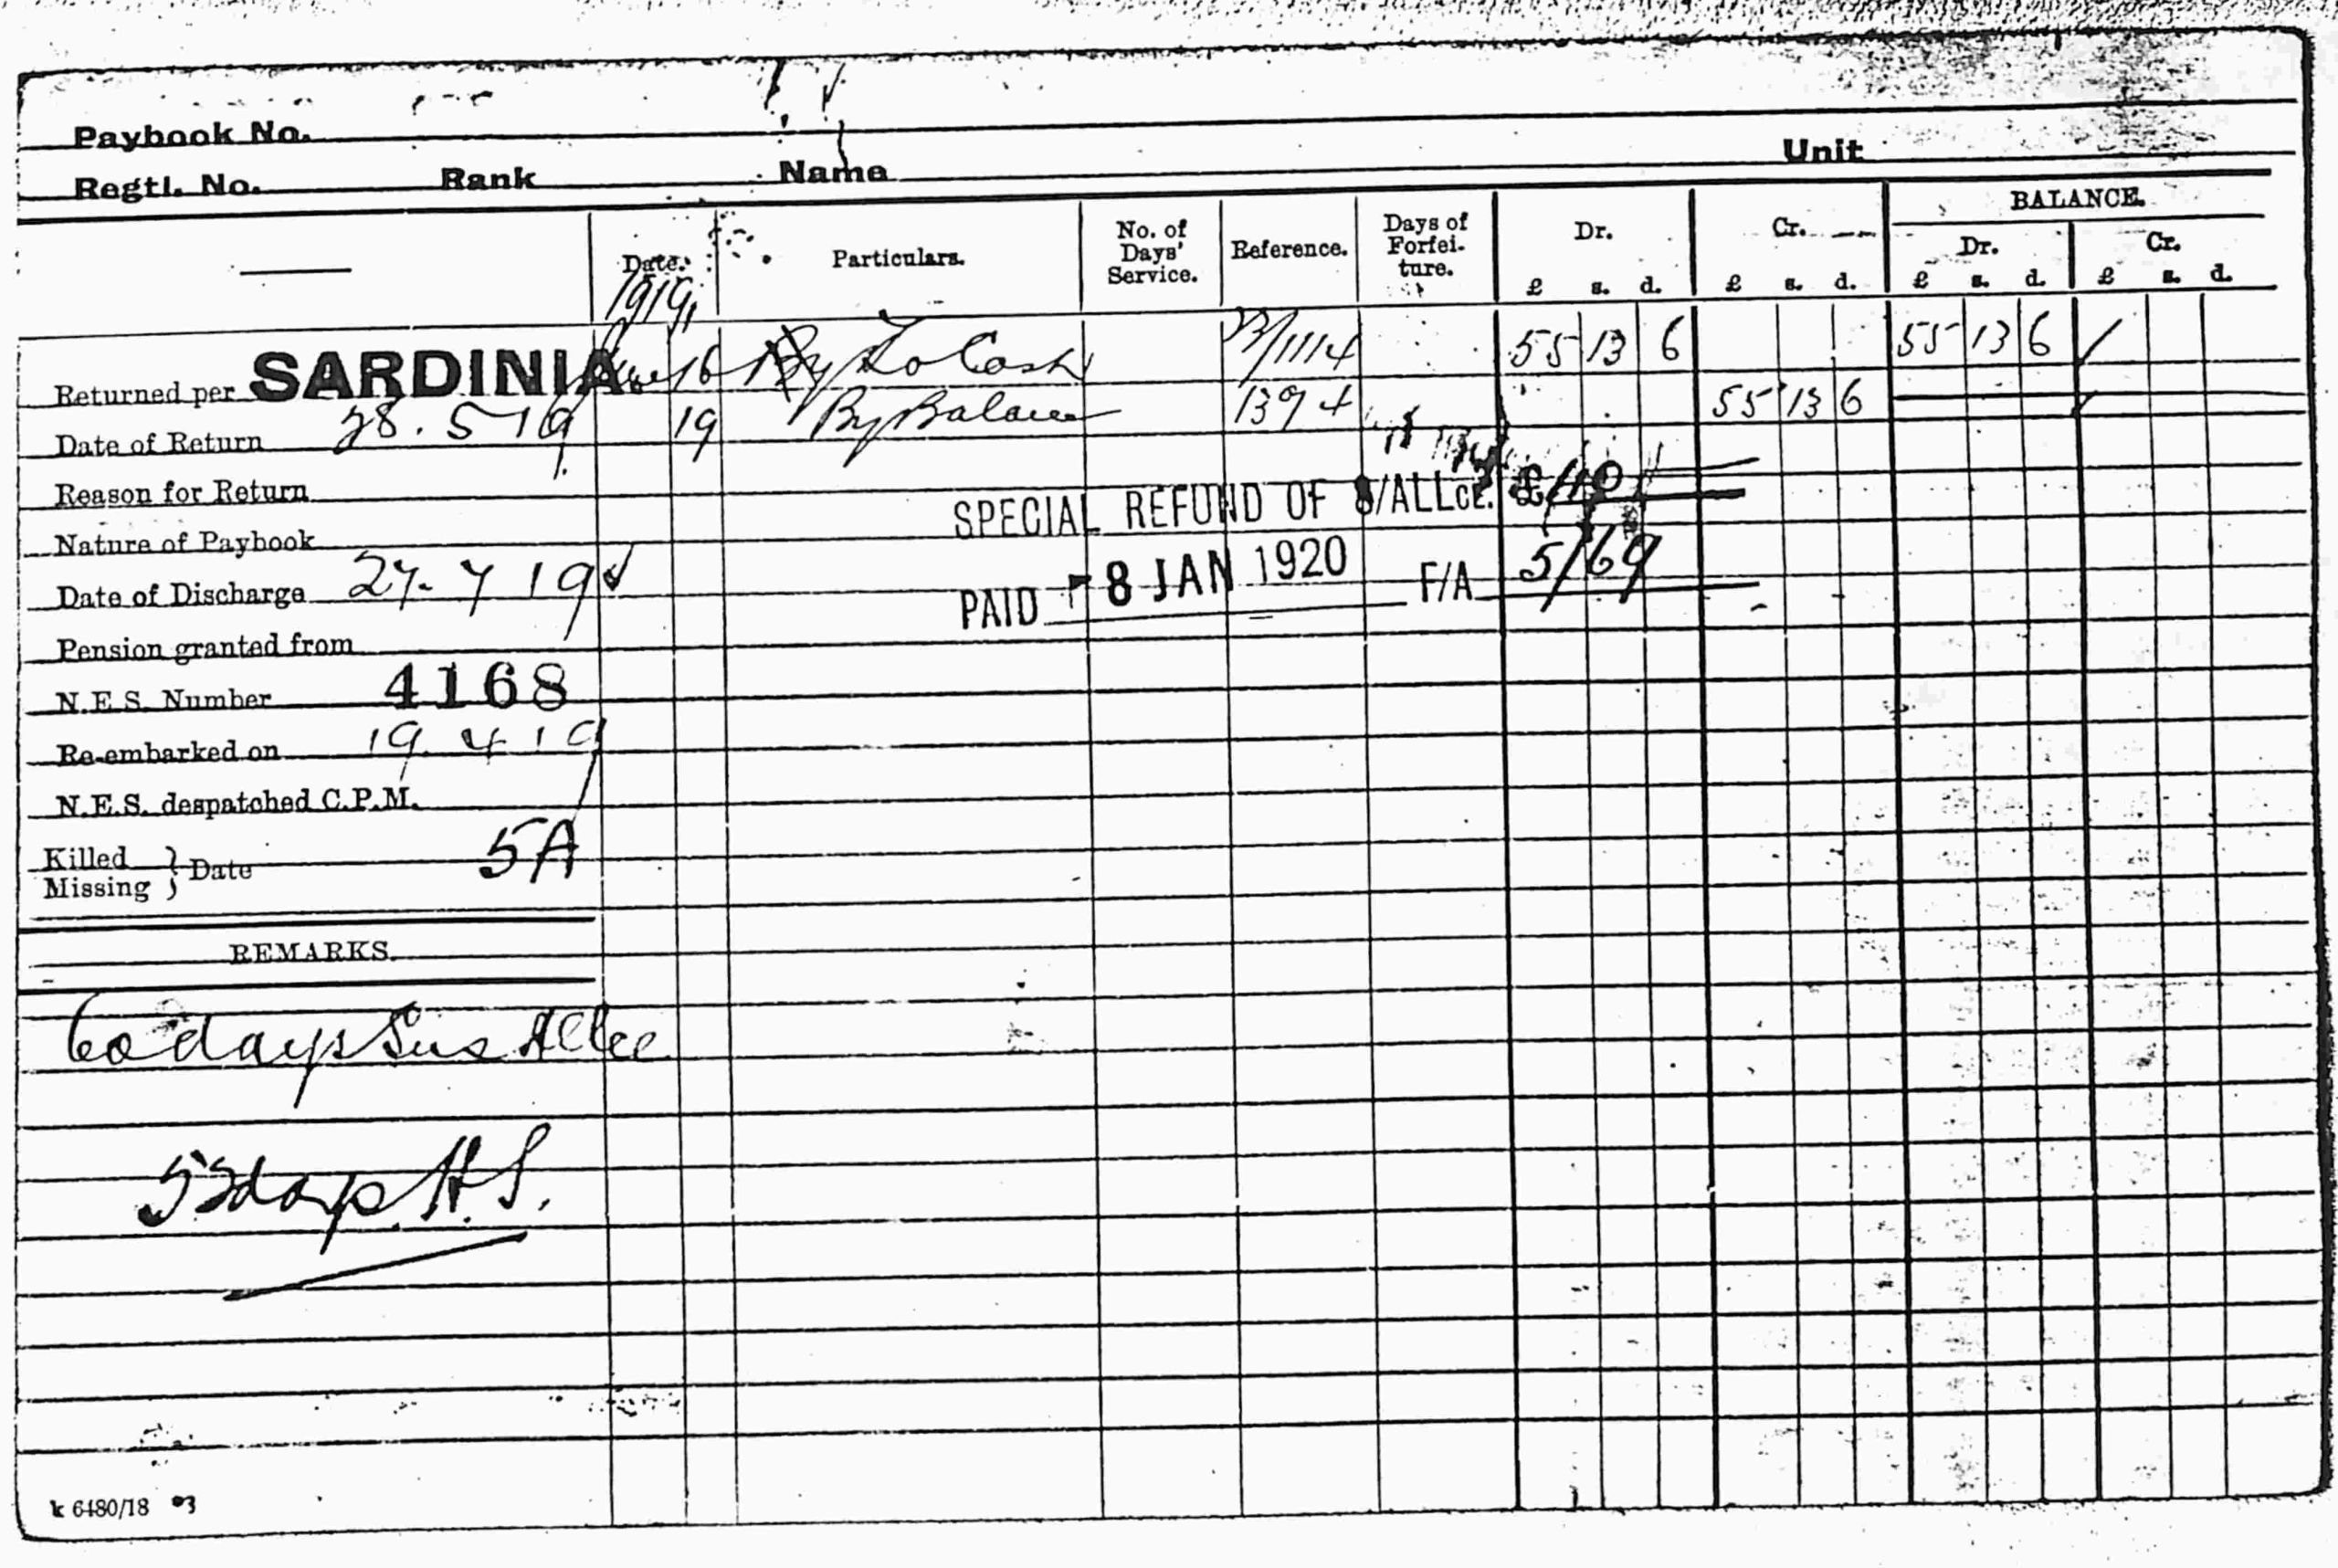 Paybook No.
Regtl. No. Rank Name Unit
Date. Particulars. No. of Days' Service. Reference. Days of Forfei- ture. Dr. Cr. BALANCE.
Dr. Cr.
£ s. d. £ s. d. £ s. d. £ s. d.
1919
Returned per SARDINIA 16 By To Cash 55 13 6 55 13 6
Date of Return 28.5 19 19 By Balance 1394 55 13 6
Reason for Return
SPECIAL REFUND OF S/ALLCE. £
Nature of Paybook
Date of Discharge 27. 7 19 PAID - 8 JAN 1920 F/A 5/69
Pension granted from
N.E.S. Number 4168
Re-embarked on 19. 4 19
N.E.S. despatched C.P.M.
Killed } Date 5A
Missing
REMARKS.
60 days Sus Allce
53 days H.S.
k 6480/18